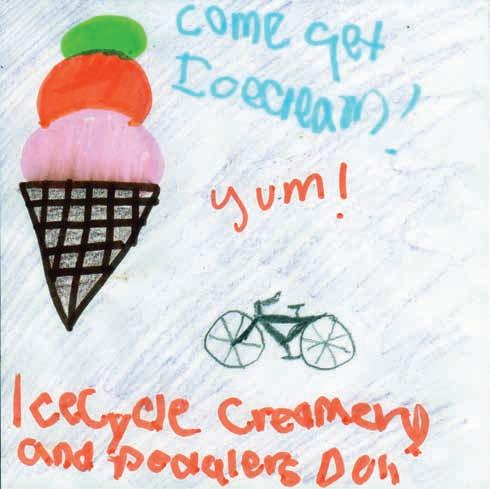 come get
Icecream!
yum!
IceCycle Creamery
and pedalers Deli